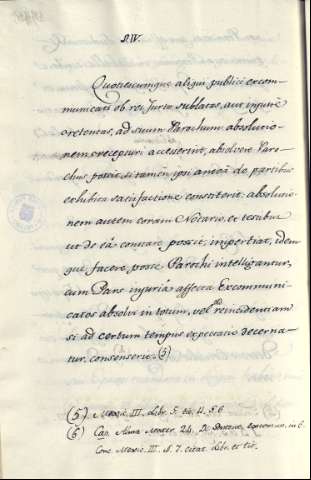 §. IV.
Quotiescumque aliqui publicè excom-
municati ob res furto sublatas, aut injustè
retentas, ad suum Parochum absolutio-
nem recepturi accesserint, absolvere Paro-
chus possit, si tamen ipsi antea de partibus
exhibita satisfactione constiterit: absolutio-
nem autem coram Notario, et testibus
ut de eâ constare possit, impertiat, idem
que facere posse Parochi intelligantur,
cum Pars injuria affecta Excommuni-
catos absolvi in totum, vel ad reincidentiam
si ad certum tempus expectatio decerna-
tur, consenserit. (5)
(5) Mexic. III. Libr. 5. tit. 11. §. 6.
(6) Cap. Alma Mater. 24. De Sentent. excommun. in 6.
Conc. Mexic. III. §. 7. citat. Libr. et tit.